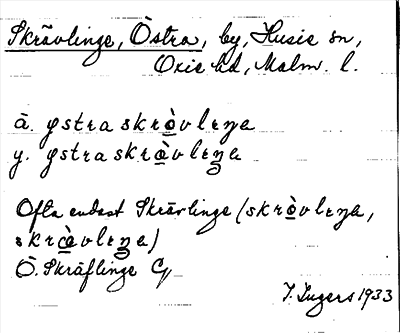 Skrävlinge, Östra, by, Husie sn,
Oxie hd, Malm. l.
ä. østraskròvleŋe
y. østraskròvleŋe
Ofta endast Skrävlinge (skròvleŋe,
skròvleŋe)
Ö. Skräflinge Gk
I. Ingers 1933